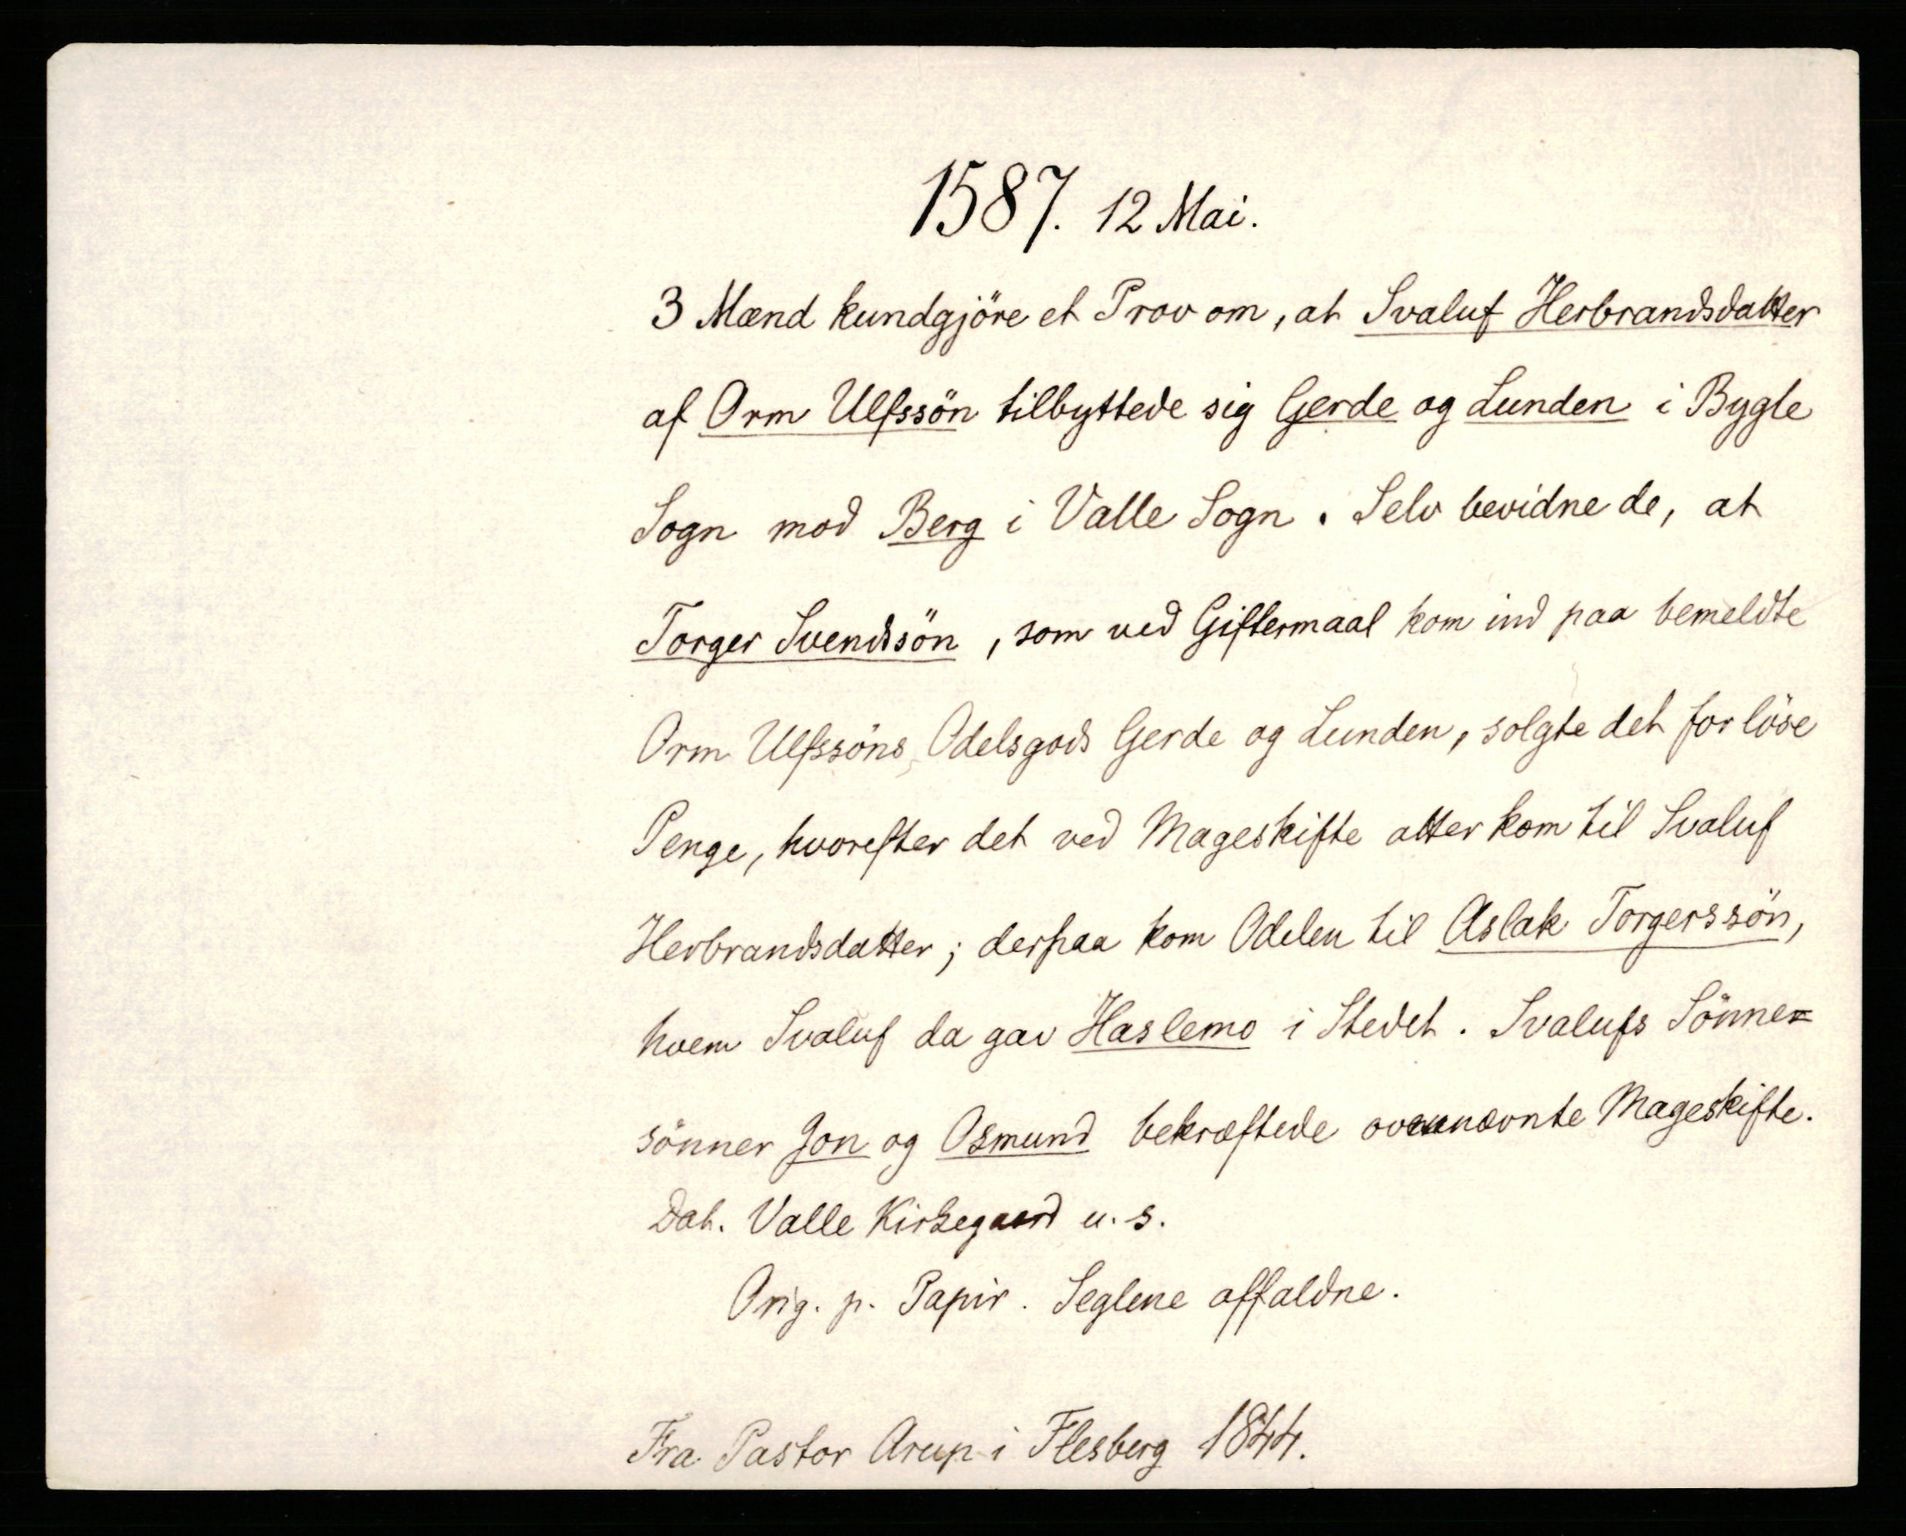 1587. 12 Mai.
3 Mænd kundgjöre et Prov om, at Svaluf Herbrandsdatter
af Orm Ulfssön tilbyttede sig Gerde og Lunden i Bygle
Sogn mod Berg i Valle Sogn. Selv bevidne de, at
Torger Svendssön, som ved Giftermaal kom ind paa bemeldte
Orm Ulfssöns Odelsgods Gerde og Lunden, solgte det for löse
Penge, hvorefter det ved Mageskifte atter kom til Svaluf
Herbrandsdatter; derpaa kom Odelen til Aslak Torgerssön,
hvem Svaluf da gav Haslemo i Stedet. Svalufs Sönne=
sönner Jon og Osmund bekræftede ovennævnte Mageskifte.
Dat. Valle Kirkegaard u. s.
Orig. p. Papir. Seglene affaldne.
Fra Pastor Arup i Flesberg 1844.